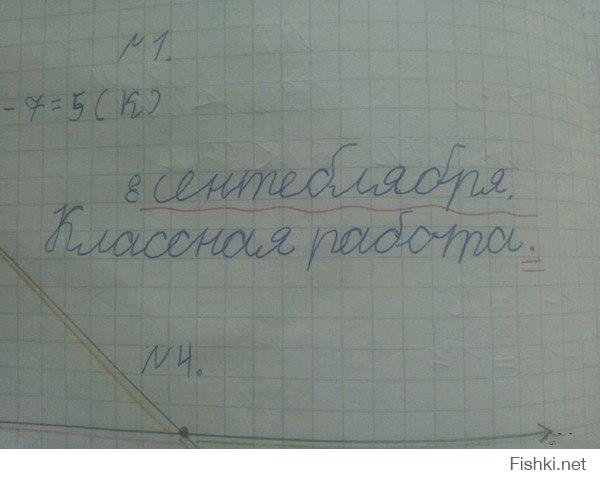 №1.
-7=5(К)
8 сентеблября.
Классная работа.
№4.
Fishki.net